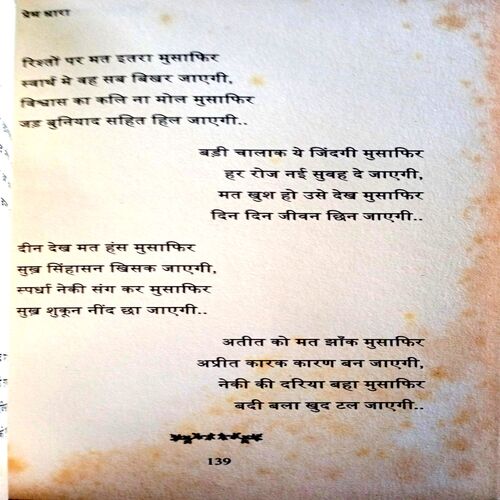 प्रेम धारा
रिश्तों पर मत इतरा मुसाफिर
स्वार्थ मे वह सब बिखर जाएगी,
विश्वास का कलि ना मोल मुसाफिर
जड बुनियाद सहित हिल जाएगी..
बड़ी चालाक ये जिंदगी मुसाफिर
हर रोज नई सुवह दे जाएगी,
मत खुश हो उसे देख मुसाफिर
दिन दिन जीवन छिन जाएगी..
दीन देख मत हंस मुसाफिर
सुख सिंहासन खिसक जाएगी,
स्पर्धा नेकी संग कर मुसाफिर
सुख शुकून नींद छा जाएगी..
अतीत को मत झाँक मुसाफिर
अप्रीत कारक कारण बन जाएगी,
नेकी की दरिया बहा मुसाफिर
बदी बला खुद टल जाएगी..
139